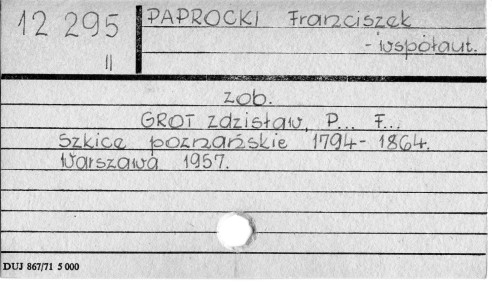 12 295
II
PAPROCKI Franciszek
- współaut.
zob.
GROT Zdzisław, P... F...
Szkice poznańskie 1794-1864.
Warszawa 1957.
DUJ 867/71 5 000